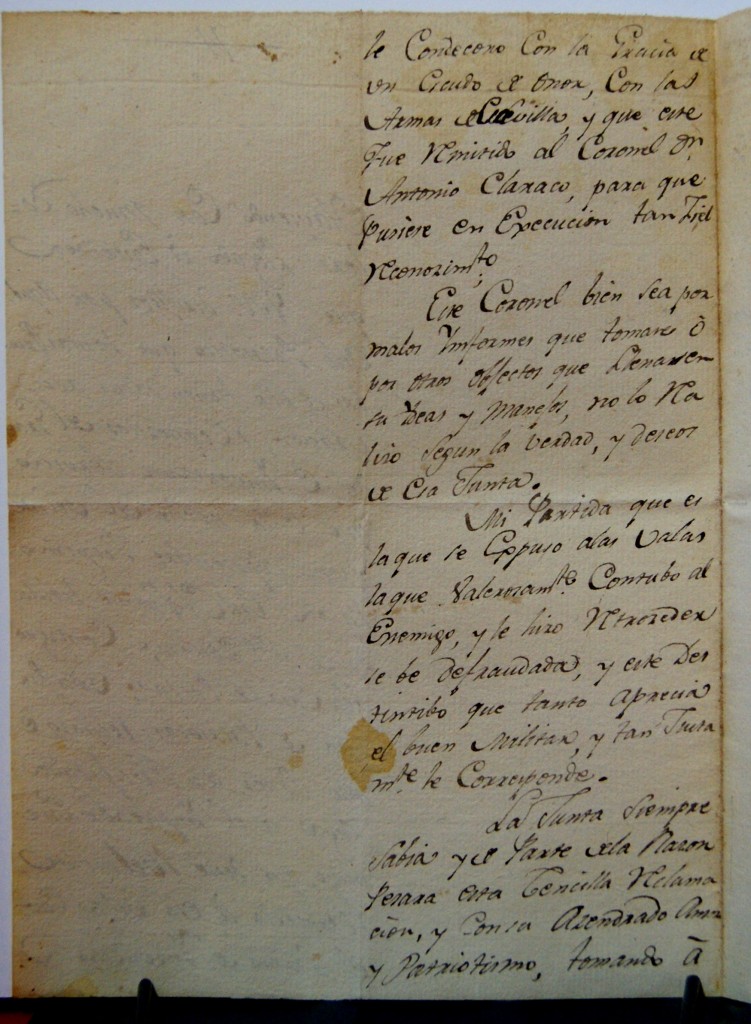 le Condecoro Con la Gracia de
un Escudo de Onor, Con las
Armas de Sevilla, y que este
fue Remitido al Coronel Dn.
Antonio Claraco, para que
Pusiese en Execucion tan fiel
Reconozimto.
Este Coronel bien sea por
malos Ynformes que tomares ò
por otros Obfectos que Llenasen
su Ydeas y Manejos, no lo Rea
liso segun la Verdad, y deseos
de Esa Junta.
Mi Partida que es
la que se Expuso alas Valas
la que Valerosamte. Contubo al
Enemigo, y le hizo Retroceder
se be defraudada, y este Des
tintibo que tanto Aprecia
el buen Militar, y tan Justa
mte. le Corresponde.
La Junta Siempre
Sabia y de Parte dela Razon
Pesara esta Cencilla Reclama
cion, y Con su Asendrado Amor
y Patriotismo, tomando à